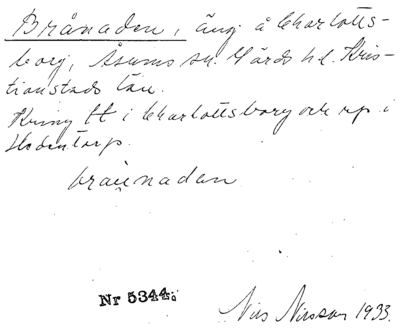 Brånaden, äng å Charlotts-
borg, Åsums sn. Gärds hd. Kris-
tianstads län.
Kring H i Charlottsborg och rp. i
Hedentorp.
brännadan
Nr 5344.
Nils Nilsson 1933.